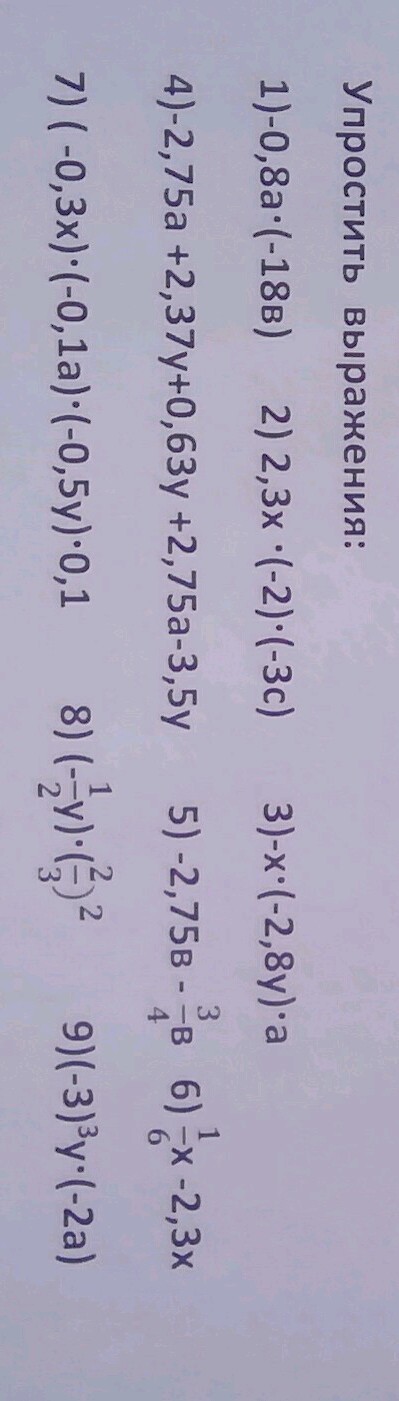 Упростить выражения:
1)-0,8а·(-18в) 2) 2,3х ·(-2)·(-3с) 3)-х·(-2,8у)·а
4)-2,75а +2,37у+0,63у +2,75а-3,5у 5) -2,75в - 3/4в 6) 1/6х -2,3х
7) ( -0,3х)·(-0,1а)·(-0,5у)·0,1 8) (-1/2у)·(2/3)² 9)(-3)³у·(-2а)